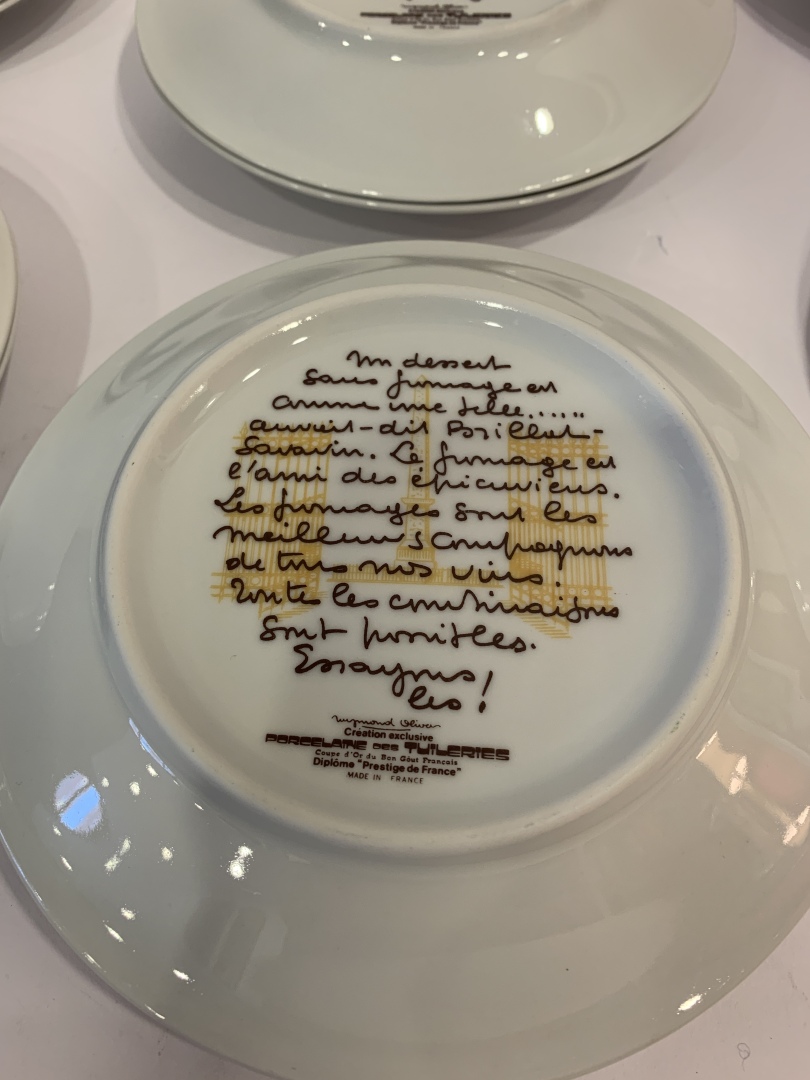 Un dessert
sans fromage est
comme une belle......
aurait-dit Brillat-
Savarin. Le fromage est
l'ami des épicuriens.
Les fromages sont les
meilleurs compagnons
de tous nos vins.
Toutes les combinaisons
sont possibles.
Essayons
les !
Raymond Oliver
Création exclusive
PORCELAINE DES TUILERIES
Coupe d'Or du Bon Goût Français
Diplôme "Prestige de France"
MADE IN FRANCE